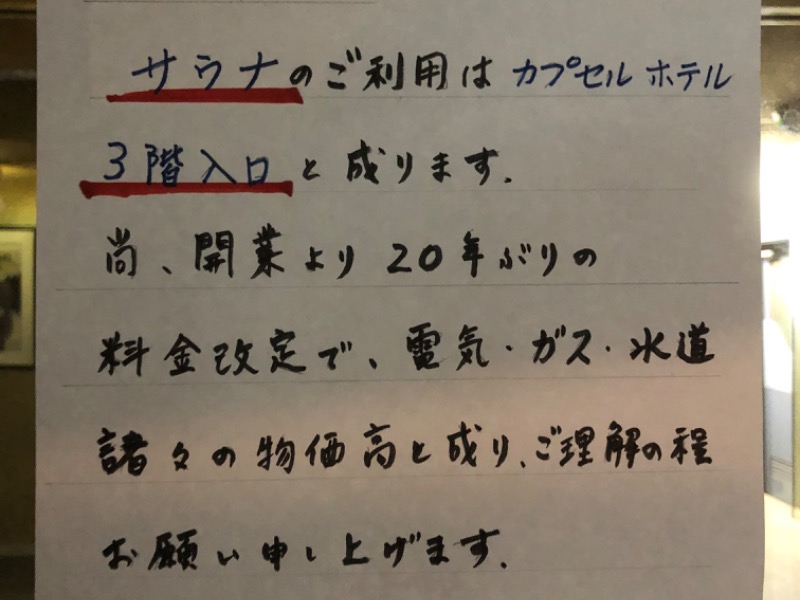 サウナのご利用は カプセル ホテル
3階入口と成ります.
尚、開業より 20年ぶりの
料金改定で、電気・ガス・水道
諸々の物価高と成り、ご理解の程
お願い申し上げます.